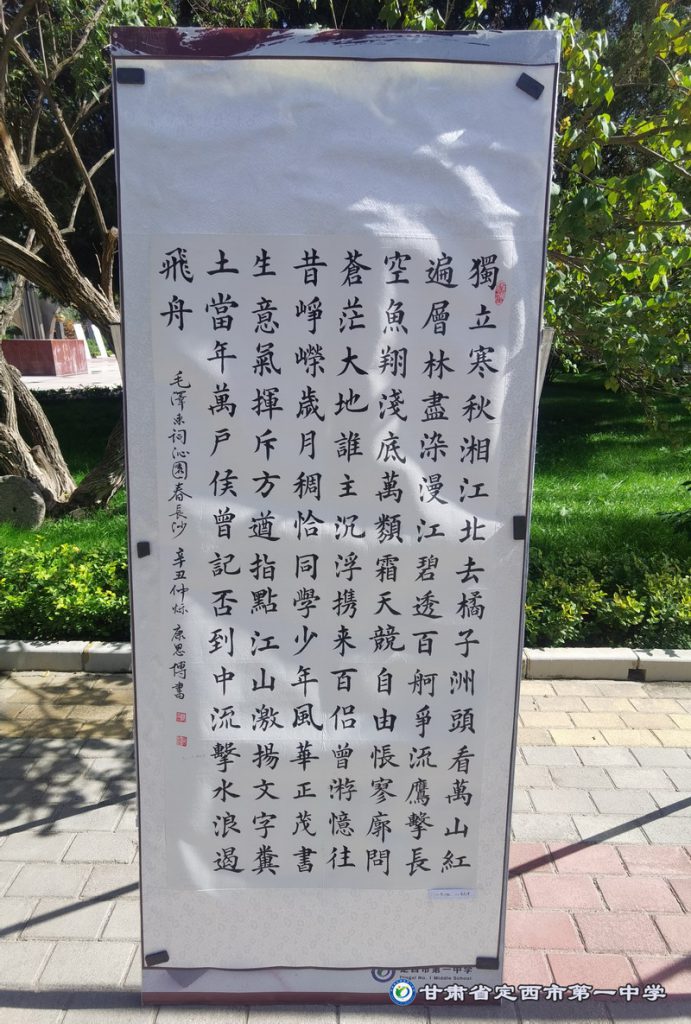 獨立寒秋湘江北去橘子洲頭看萬山紅
遍層林盡染漫江碧透百舸爭流鷹擊長
空魚翔淺底萬類霜天競自由悵寥廓問
蒼茫大地誰主沉浮攜来百侣曾游憶往
昔崢嶸歲月稠恰同學少年風華正茂書
生意氣揮斥方遒指點江山激揚文字糞
土當年萬戶侯曾記否到中流擊水浪遏
飛舟
毛澤東詞沁園春長沙 辛丑仲秋 康恩博書
定西市第一中学
Dingxi No. 1 Middle School
甘肃省定西市第一中学